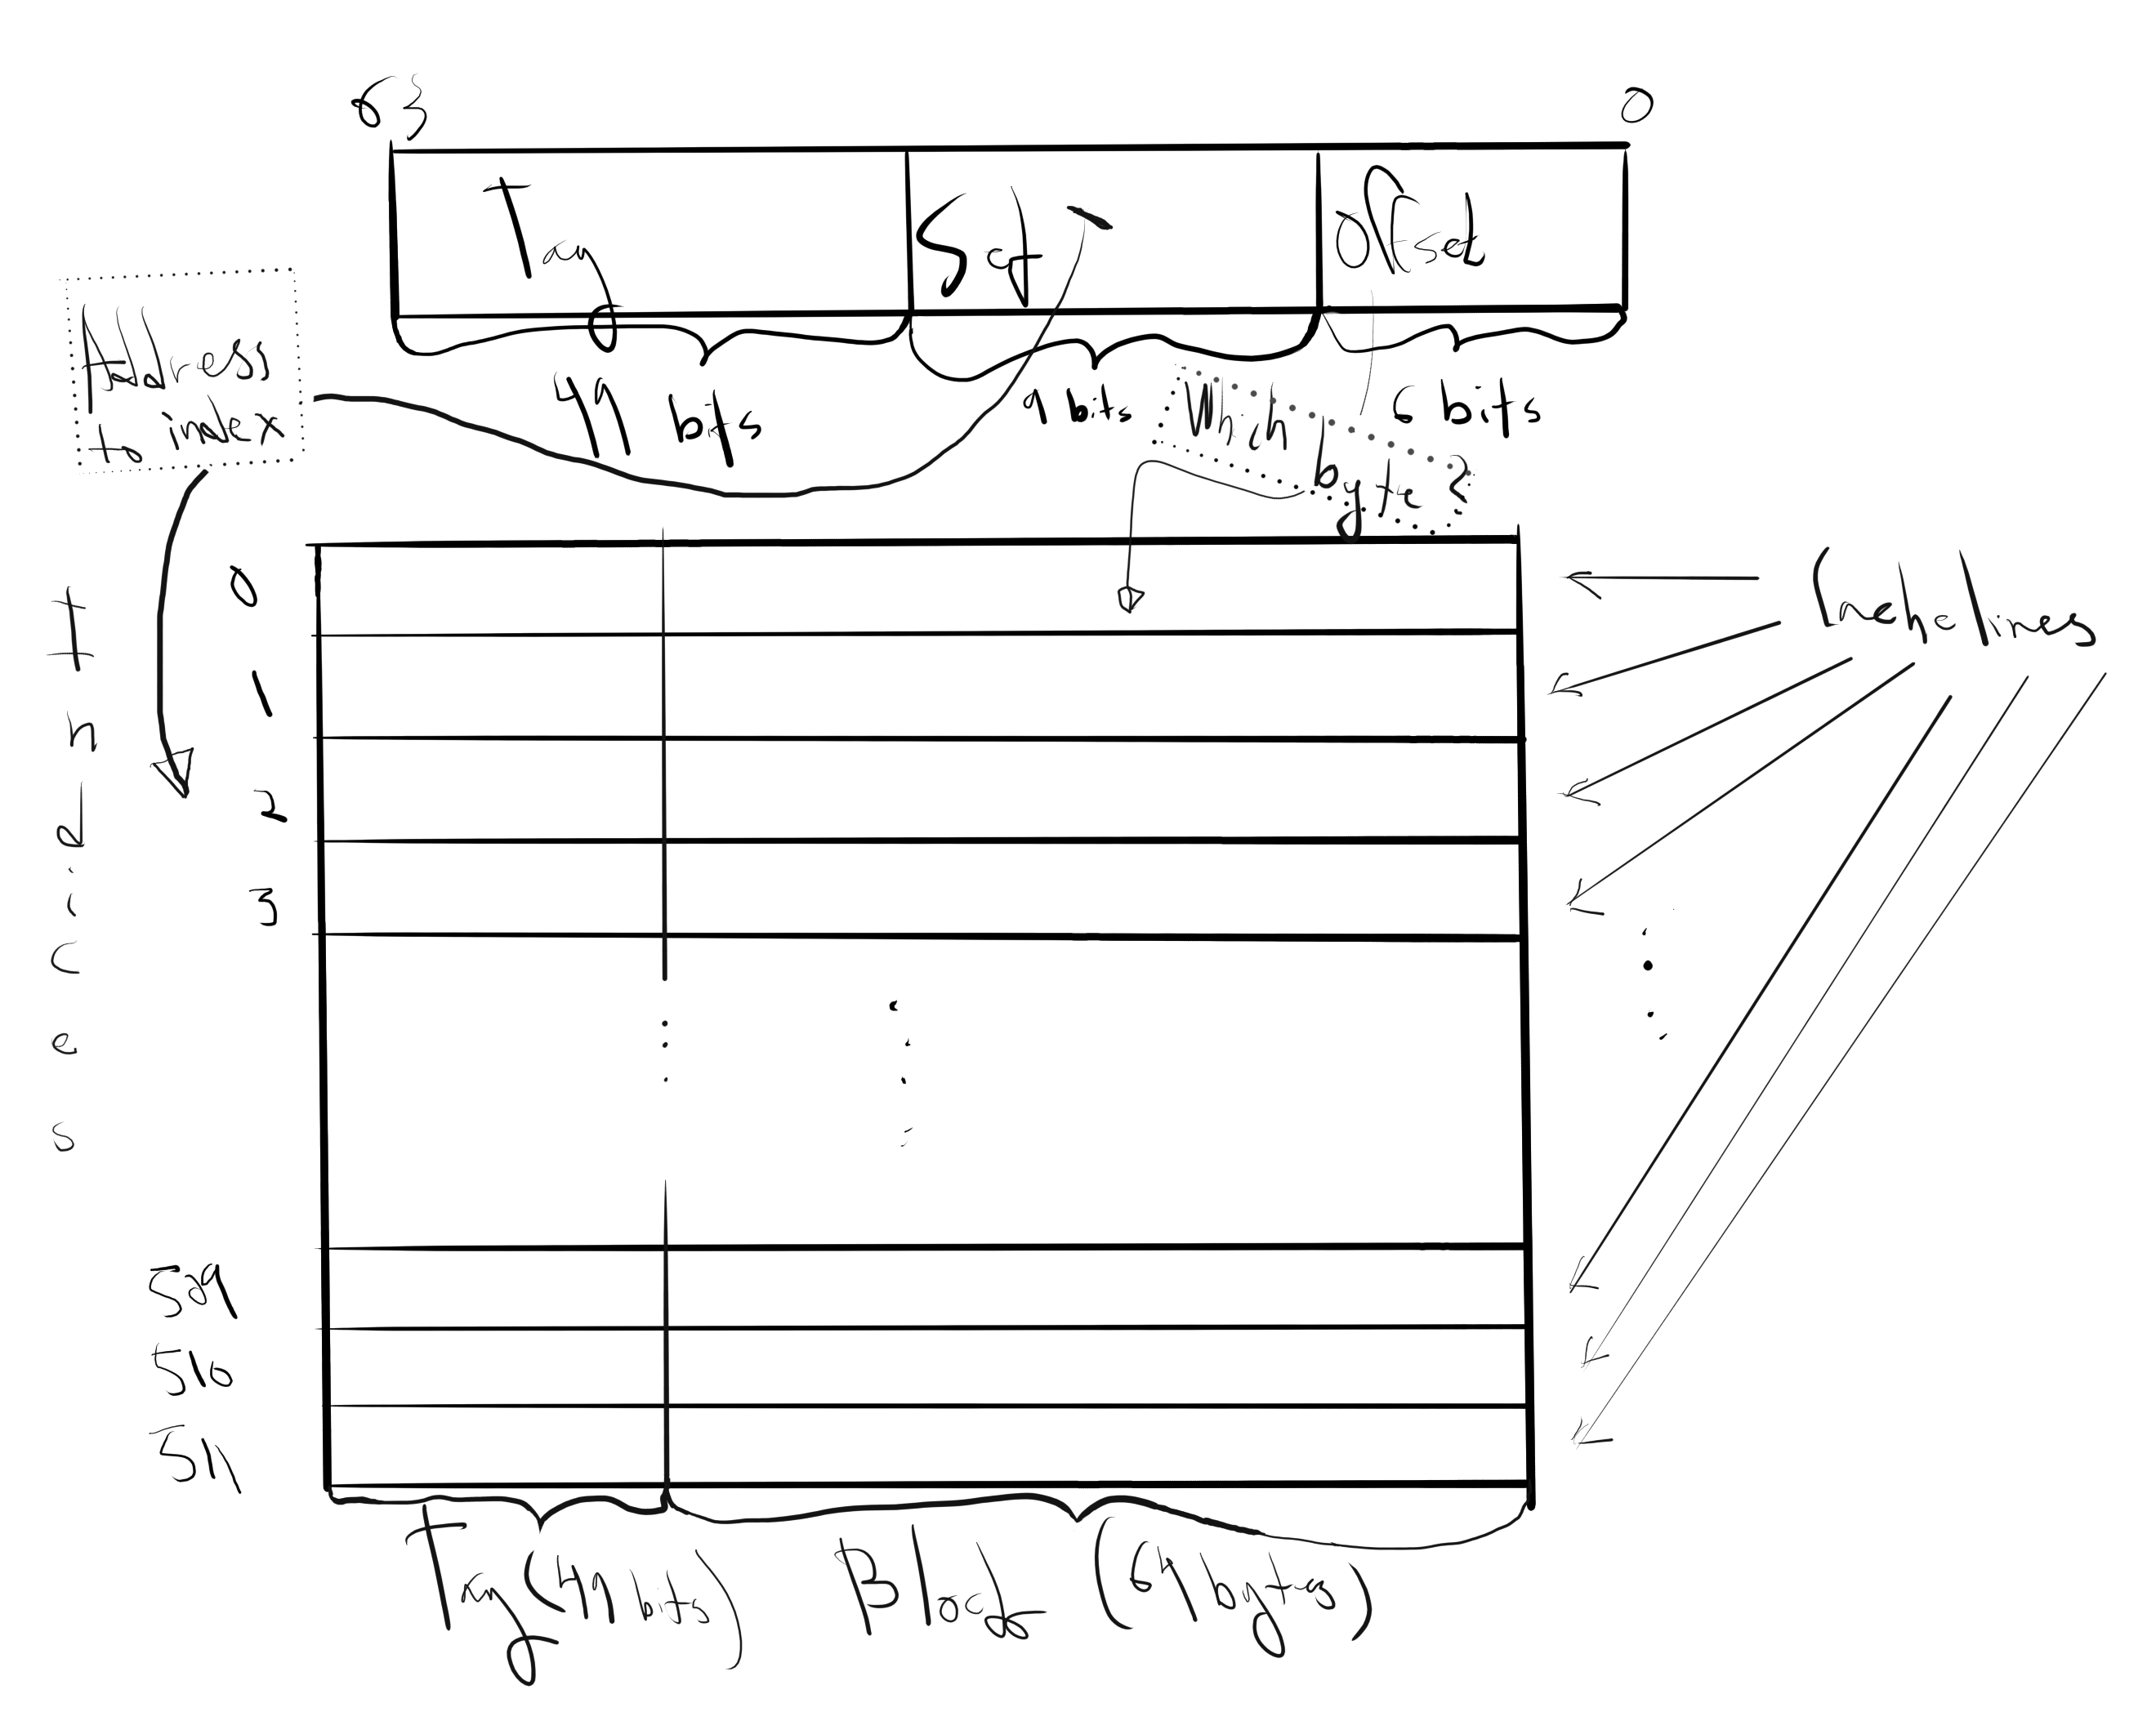 63
0
Tag
Set
Offset
49 bits
9 bits
6 bits
Address
to index
Which
byte?
Indices
0
1
2
3
509
510
511
Cache lines
Tag (49 bits)
Block (64 bytes)